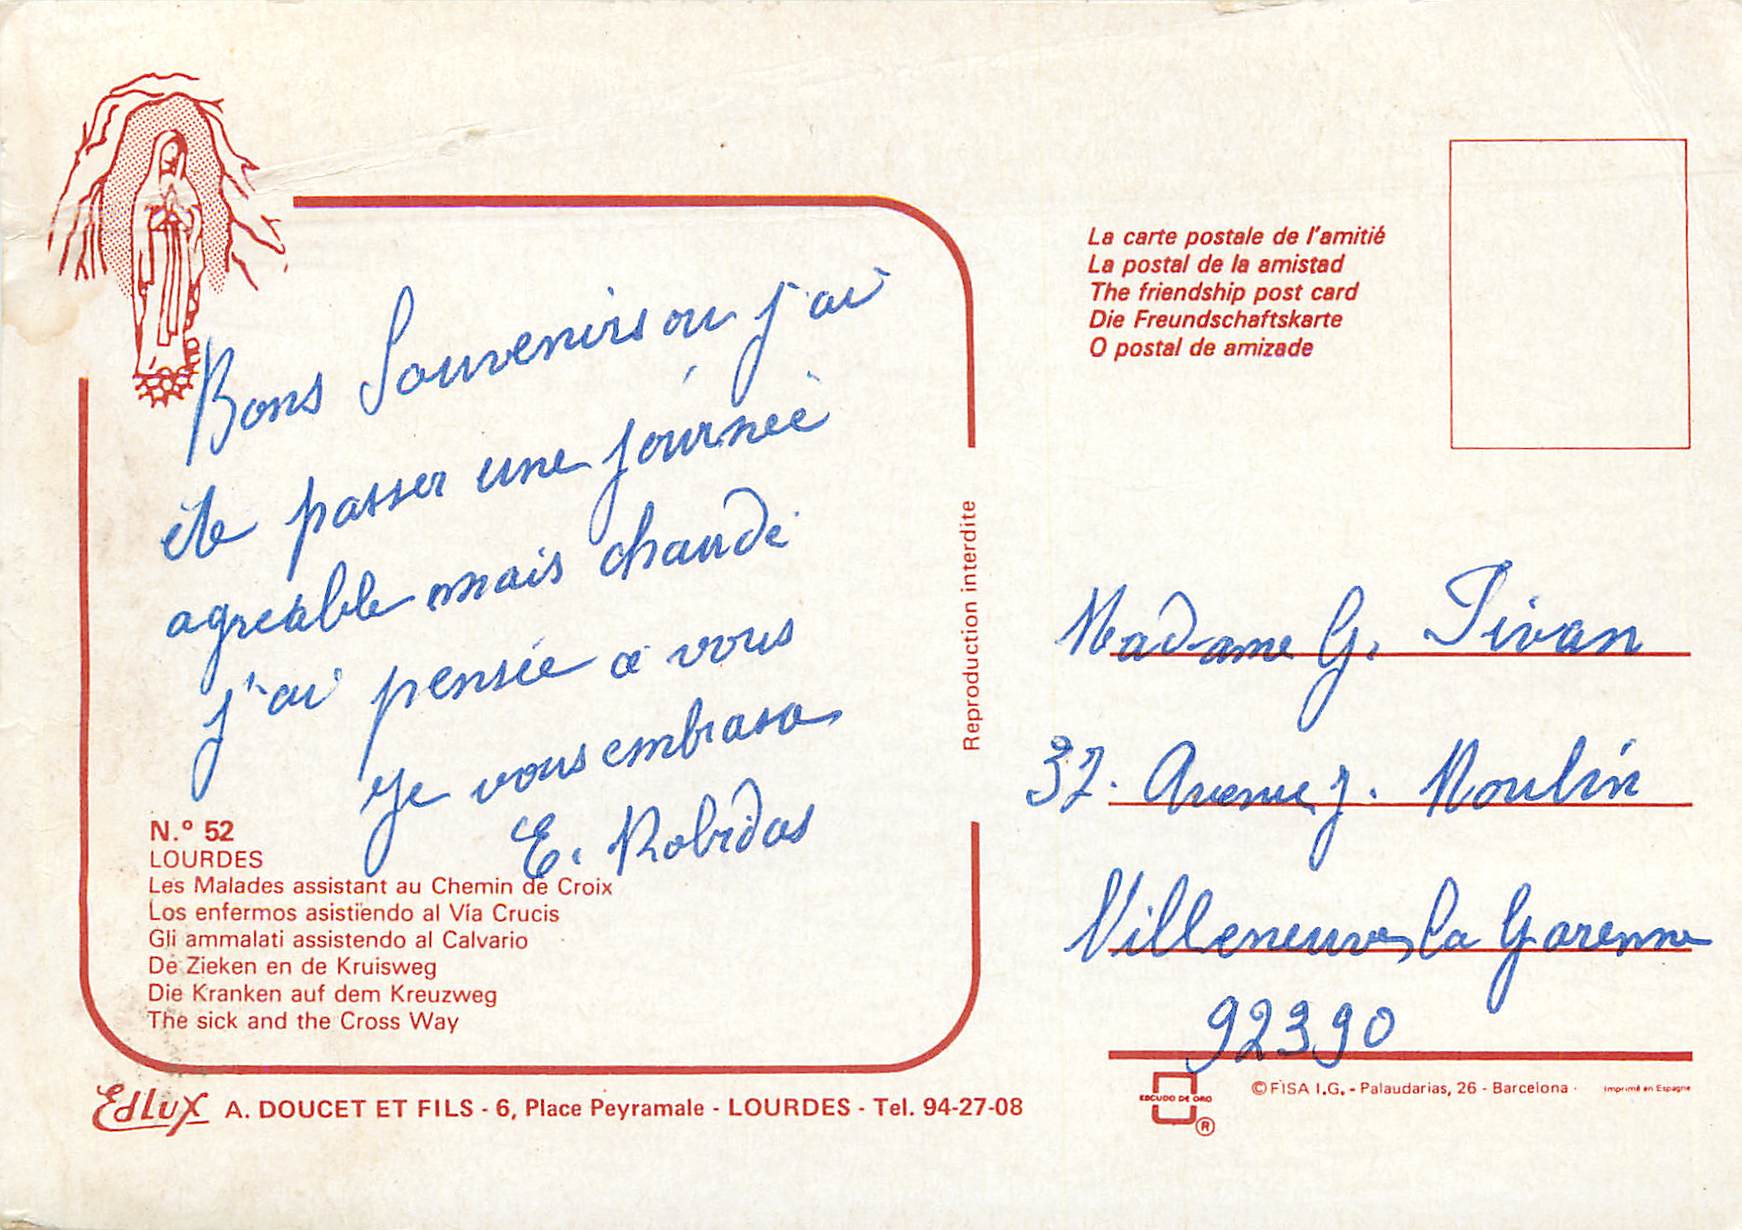 Bons Souvenirs ou j'ai
été passer une journée
agréable mais chaude
j'ai pensée a vous
je vous embrasse
E. Robidas
N.º 52
LOURDES
Les Malades assistant au Chemin de Croix
Los enfermos asistiendo al Vía Crucis
Gli ammalati assistendo al Calvario
De Zieken en de Kruisweg
Die Kranken auf dem Kreuzweg
The sick and the Cross Way
Edlux A. DOUCET ET FILS - 6, Place Peyramale - LOURDES - Tel. 94-27-08
Reproduction interdite
La carte postale de l'amitié
La postal de la amistad
The friendship post card
Die Freundschaftskarte
O postal de amizade
Madame G. Pivan
37. Avenue J. Moulin
Villeneuve la Garenne
92390
ESCUDO DE ORO
®
© FISA I.G. - Palaudarias, 26 - Barcelona
Imprimé en Espagne